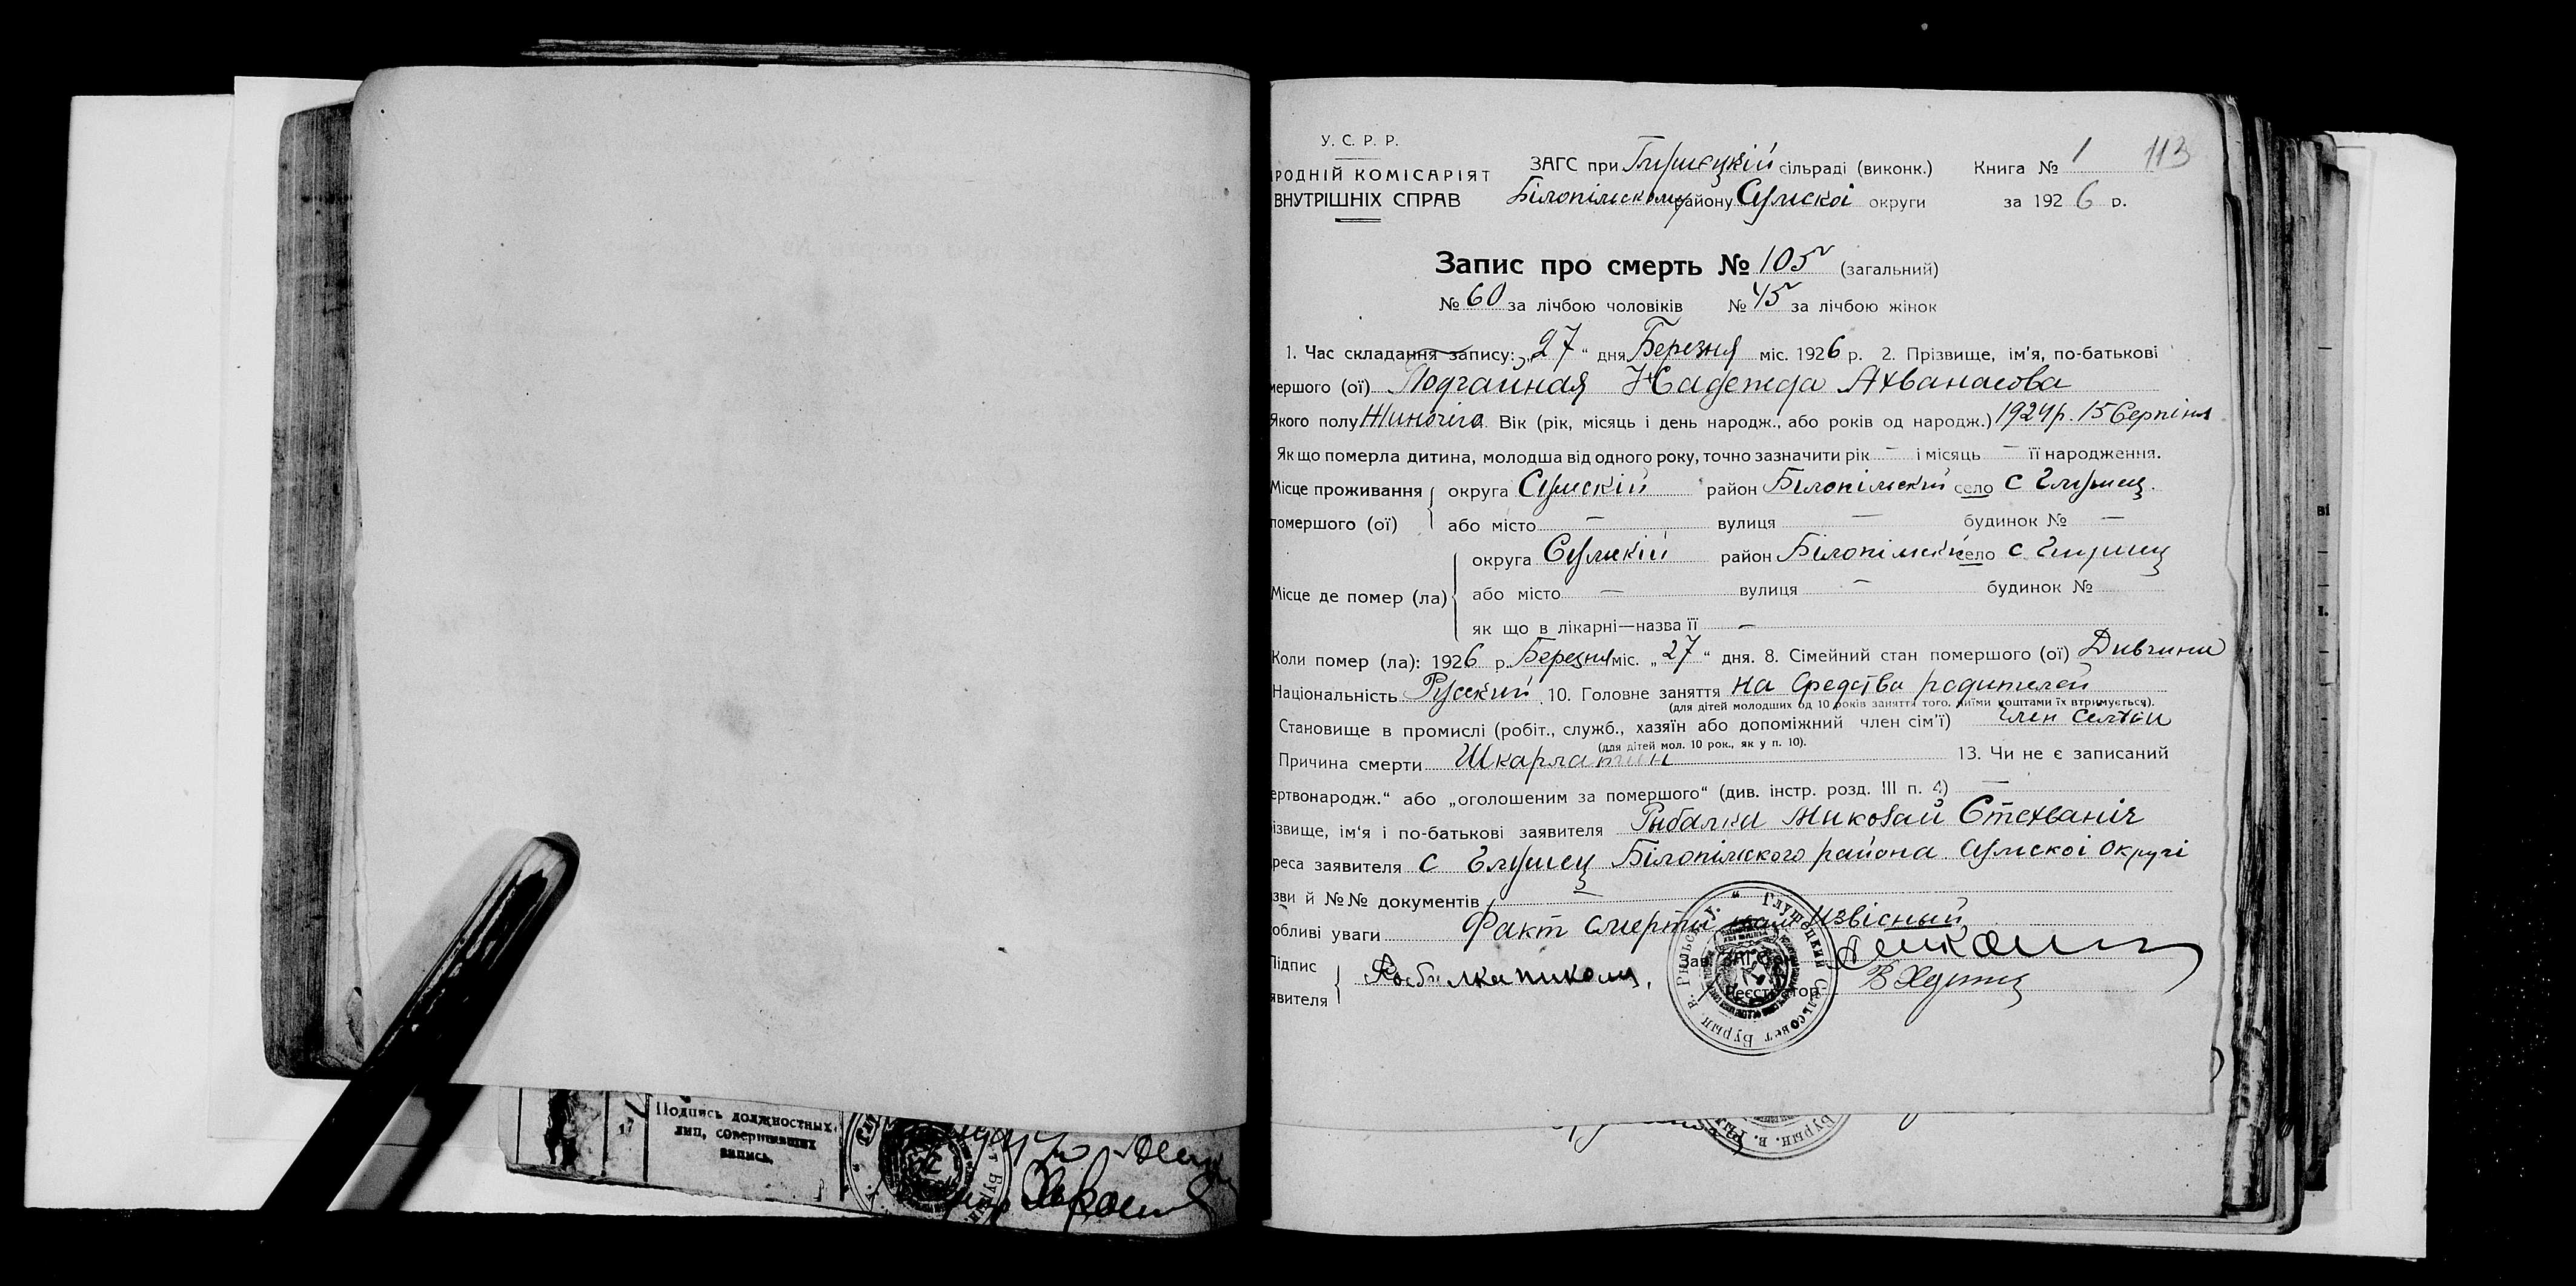 У. С. Р. Р.
РОДНІЙ КОМІСАРІЯТ
ВНУТРІШНІХ СПРАВ
ЗАГС при сільраді (виконк.) Книга № 1 113
Білопілському району Сумскоі округи за 1926 р.
Запис про смерть № 105 (загальний)
№ 60 за лічбою чоловіків № 45 за лічбою жінок
1. Час складання запису: „27“ дня Березня міс. 1926 р. 2. Прізвище, ім'я, по-батькові
мершого (ої) Подгайная Надежда Ахванасова
Якого полу Жиночіго Вік (рік, місяць і день народж., або років од народж.) 1924 р. 15 Серпіня
Як що померла дитина, молодша від одного року, точно зазначити рік – і місяць – її народження.
Місце проживання округа Сумскій район Білопілский село с Глушец
померщого (ої) або місто — вулиця — будинок № —
округа Сумскій район Білопілский село с Глушец
Місце де помер (ла) або місто — вулиця — будинок №
як що в лікарні—назва її —
Коли помер (ла): 1926 р. Березня міс. „27“ дня. 8. Сімейний стан помершого (ої) Дивчина
Національність Русский 10. Головне заняття на средства родителей
(для дітей молодших од 10 років заняття того, чиїми коштами їх втримується).
Становище в промислі (робіт., служб., хазяїн або допоміжний член сім'ї) член семьи
(для дітей мол. 10 рок., як у п. 10).
Причина смерти Шкарлатин 13. Чи не є записаний
ертвонародж.“ або „оголошеним за помершого“ (див. інстр. розд. III п. 4) —
ізвище, ім'я і по-батькові заявителя Рыбалка Миколай Стехваніч
реса заявителя с Глушец Білопілского района Сумскоі округі
зви й №№ документів
обливі уваги Факт смерти нам извісный
Підпис
явителя
Рыбалка николай
Зав. ЗАГСом
Реєстратор
Глушецкий Сельсовет Бурын. в. Рыльск. у.
17
Подпись должностных
лиц, совершивших
запись.
Бурын. в. Рыл